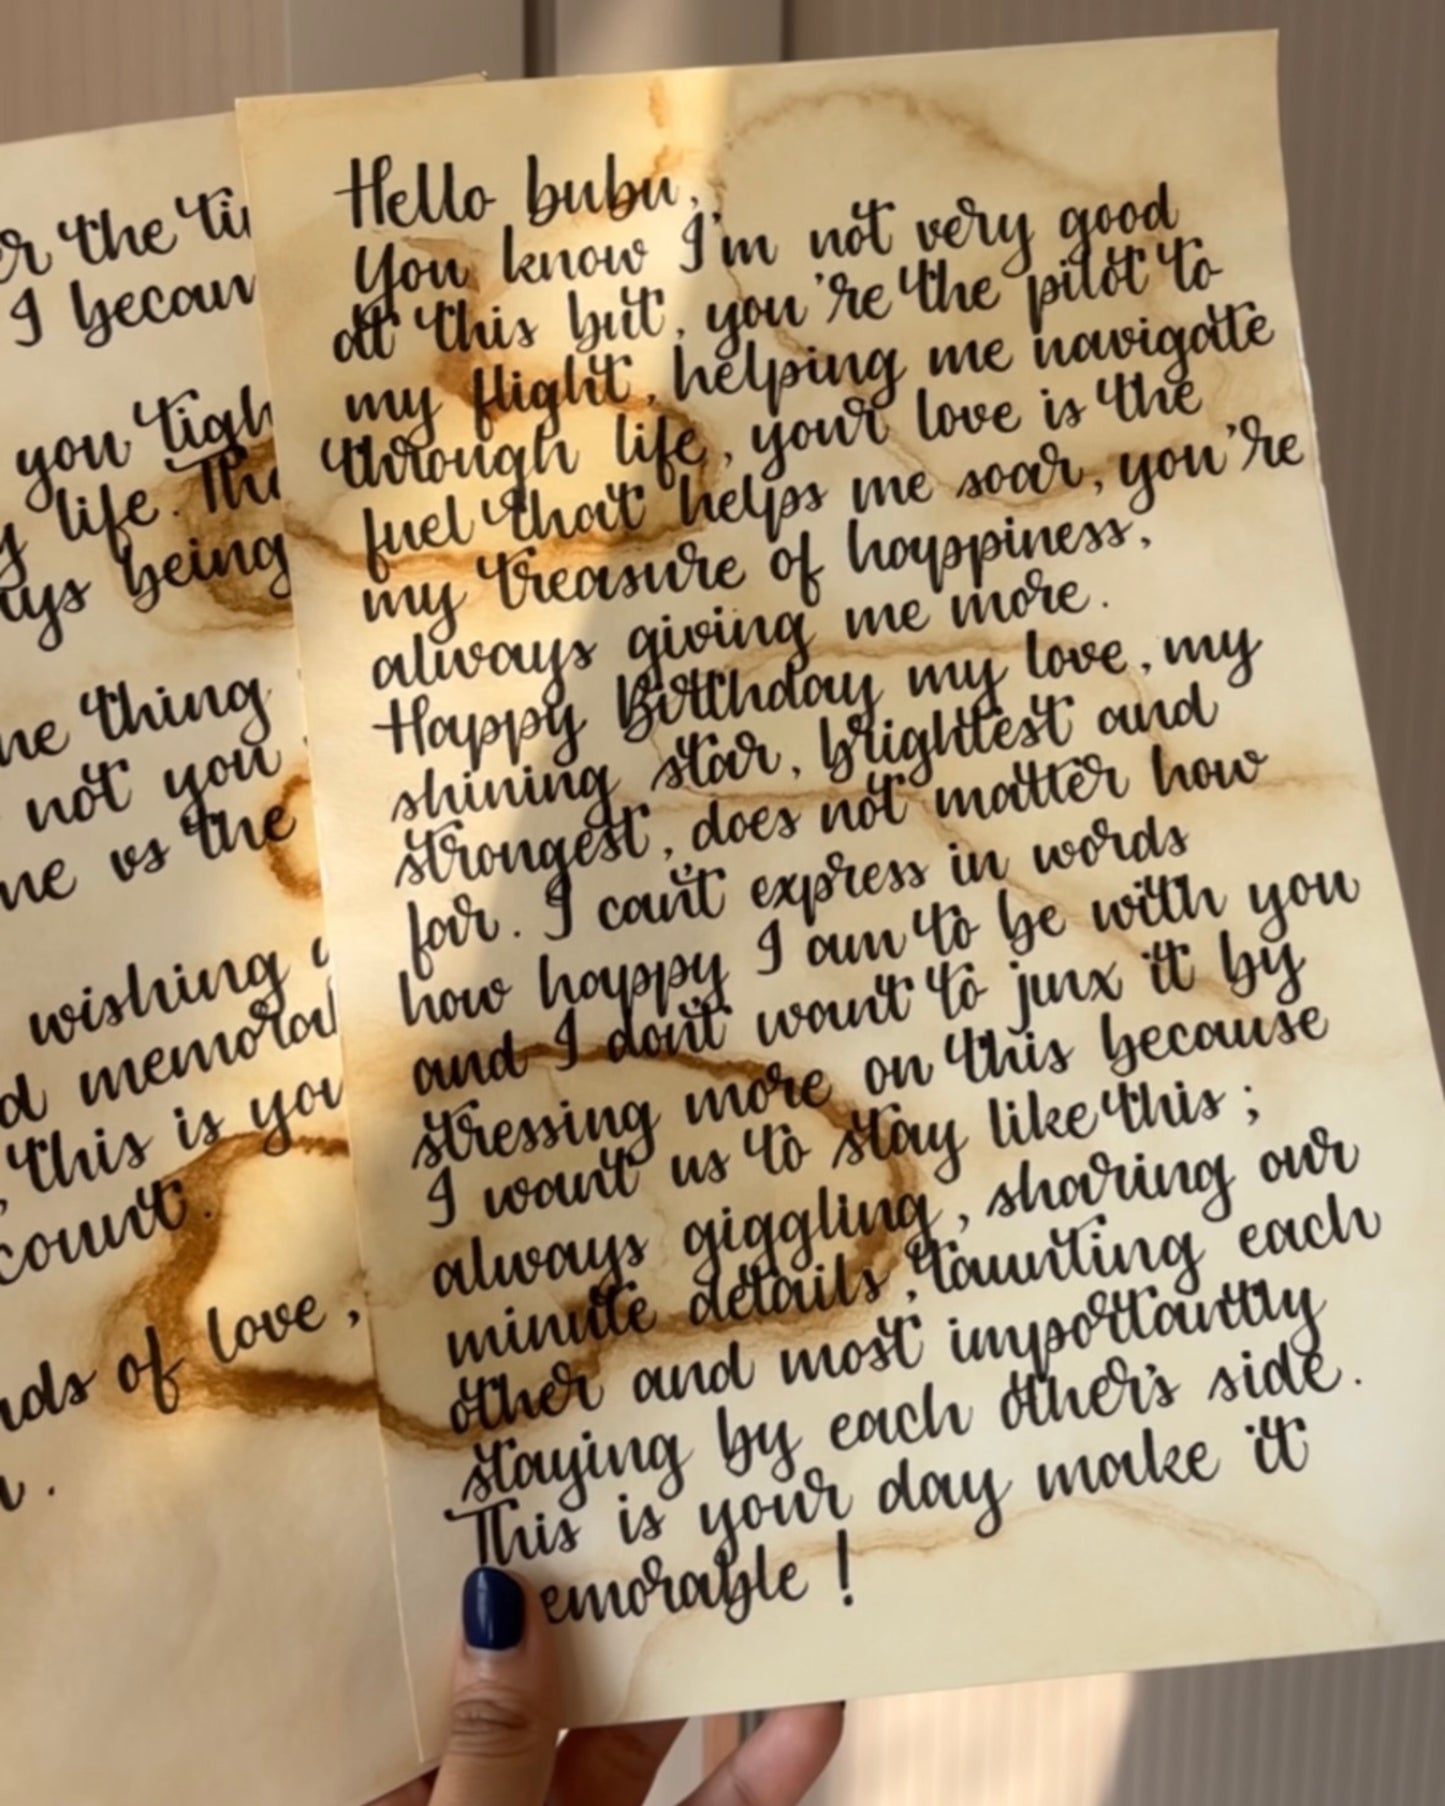 r the
I becam
you tigh
life. The
ys being
ne thing
not you
me vs the
wishing
d memora
this is you
count.
nds of love,
Hello bubu,
You know I'm not very good
at this but, you're the pilot to
my flight, helping me navigate
through life, your love is the
fuel that helps me soar, you're
my treasure of happiness,
always giving me more.
Happy Birthday my love, my
shining star, brightest and
strongest, does not matter how
far. I can't express in words
how happy I am to be with you
and I don't want to jinx it by
stressing more on this because
I want us to stay like this ;
always giggling, sharing our
minute details, taunting each
other and most importantly
staying by each other's side.
This is your day make it
emorable !